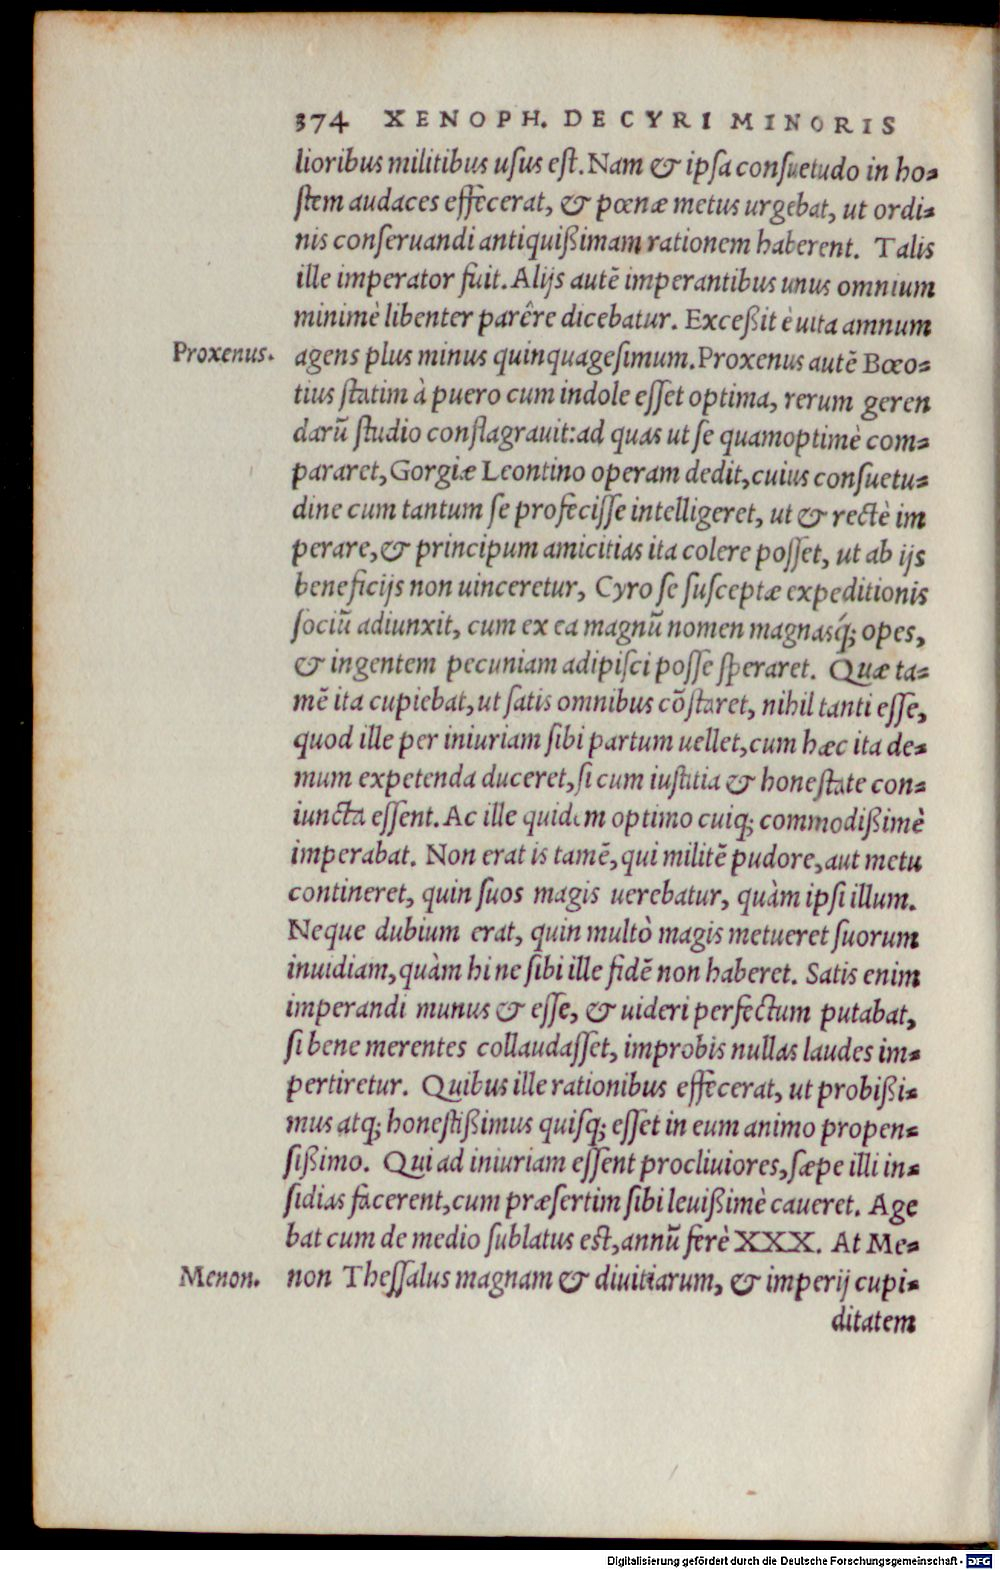 374 XENOPH. DE CYRI MINORIS
lioribus militibus usus est. Nam & ipsa consuetudo in ho=
stem audaces effecerat, & pœnæ metus urgebat, ut ordi=
nis conseruandi antiquißimam rationem haberent. Talis
ille imperator fuit. Alijs autẽ imperantibus unus omnium
minimè libenter parêre dicebatur. Exceßit è uita amnum
Proxenus. agens plus minus quinquagesimum. Proxenus autẽ Bœo=
tius statim à puero cum indole esset optima, rerum geren
darũ studio conflagrauit: ad quas ut se quamoptimè com=
pararet, Gorgiæ Leontino operam dedit, cuius consuetu=
dine cum tantum se profecisse intelligeret, ut & rectè im
perare, & principum amicitias ita colere posset, ut ab ijs
beneficijs non uinceretur, Cyro se susceptæ expeditionis
sociũ adiunxit, cum ex ea magnũ nomen magnasq́; opes,
& ingentem pecuniam adipisci posse speraret. Quæ ta=
mẽ ita cupiebat, ut satis omnibus cõstaret, nihil tanti esse,
quod ille per iniuriam sibi partum uellet, cum hæc ita de=
mum expetenda duceret, si cum iustitia & honestate con=
iuncta essent. Ac ille quidem optimo cuiq; commodißimè
imperabat. Non erat is tamẽ, qui militẽ pudore, aut metu
contineret, quin suos magis uerebatur, quàm ipsi illum.
Neque dubium erat, quin multò magis metueret suorum
inuidiam, quàm hi ne sibi ille fidẽ non haberet. Satis enim
imperandi munus & esse, & uideri perfectum putabat,
si bene merentes collaudasset, improbis nullas laudes im=
pertiretur. Quibus ille rationibus effecerat, ut probißi=
mus atq; honestißimus quisq; esset in eum animo propen=
sißimo. Qui ad iniuriam essent procliuiores, sæpe illi in=
sidias facerent, cum præsertim sibi leuißimè caueret. Age
bat cum de medio sublatus est, annũ ferè XXX. At Me=
Menon. non Thessalus magnam & diuitiarum, & imperij cupi=
ditatem
Digitalisierung gefördert durch die Deutsche Forschungsgemeinschaft - DFG